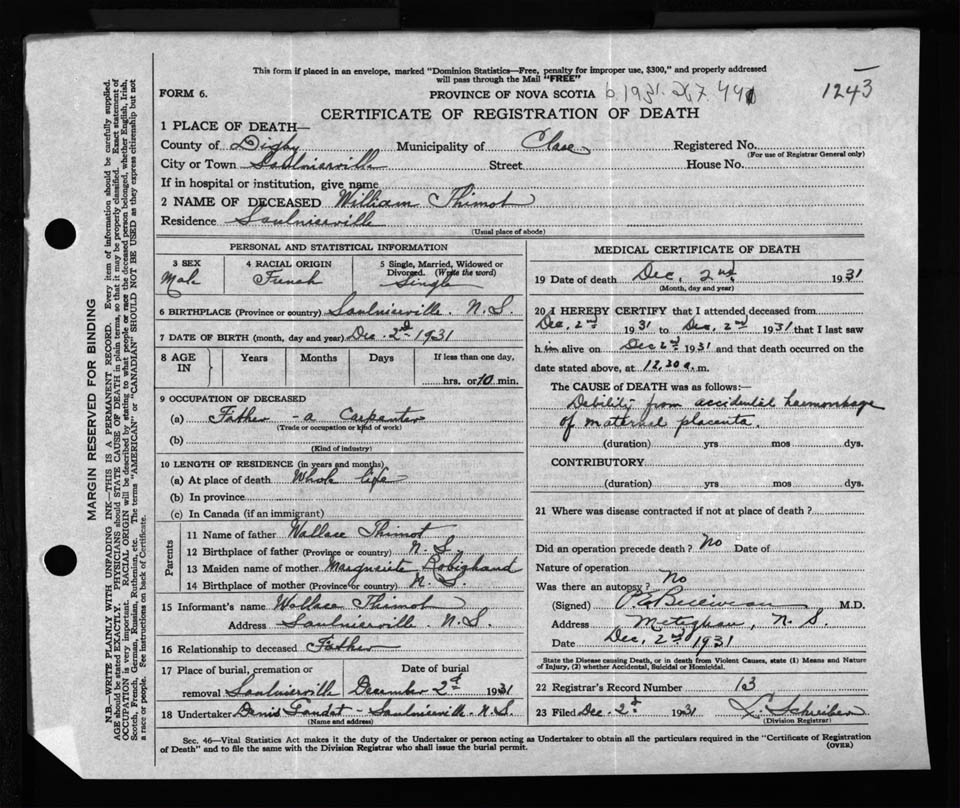 This form if placed in an envelope, marked "Dominion Statistics—Free, penalty for improper use, $300," and properly addressed
will pass through the Mail "FREE"
FORM 6.
PROVINCE OF NOVA SCOTIA
1243
CERTIFICATE OF REGISTRATION OF DEATH
1 PLACE OF DEATH—
County of Digby Municipality of Clare Registered No.
(For use of Registrar General only)
City or Town Saulnierville Street House No.
If in hospital or institution, give name
2 NAME OF DECEASED William Thimot
Residence Saulnierville
(Usual place of abode)
PERSONAL AND STATISTICAL INFORMATION
3 SEX 4 RACIAL ORIGIN 5 Single, Married, Widowed or
Divorced. (Write the word)
Male French Single
6 BIRTHPLACE (Province or country) Saulnierville. N.S.
7 DATE OF BIRTH (month, day and year) Dec. 2nd 1931
8 AGE IN Years Months Days If less than one day,
hrs. or 10 min.
9 OCCUPATION OF DECEASED
(a) Father - a Carpenter
(Trade or occupation or kind of work)
(b)
(Kind of industry)
10 LENGTH OF RESIDENCE (in years and months)
(a) At place of death Whole life
(b) In province
(c) In Canada (if an immigrant)
Parents
11 Name of father Wallace Thimot
12 Birthplace of father (Province or country) N. S.
13 Maiden name of mother Marguerite Robichaud
14 Birthplace of mother (Province or country) N. S.
15 Informant's name Wallace Thimot
Address Saulnierville. N.S.
16 Relationship to deceased Father
17 Place of burial, cremation or Date of burial
removal Saulnierville December 2nd 1931
18 Undertaker Denis Gaudet - Saulnierville. N.S.
(Name and address)
MEDICAL CERTIFICATE OF DEATH
19 Date of death Dec. 2nd 1931
(Month, day and year)
20 I HEREBY CERTIFY that I attended deceased from
Dec. 2nd 1931 to Dec. 2nd 1931 that I last saw
him alive on Dec 2nd 1931 and that death occurred on the
date stated above, at 12.30 a. m.
The CAUSE OF DEATH was as follows:—
Debility from accidental haemorrhage
of maternal placenta.
(duration) yrs mos dys.
CONTRIBUTORY
(duration) yrs. mos. dys.
21 Where was disease contracted if not at place of death?
Did an operation precede death? No Date of
Nature of operation
Was there an autopsy? No
(Signed) M.D.
Address Meteghan, N. S.
Date Dec. 2nd 1931
State the Disease causing Death, or in death from Violent Causes, state (1) Means and Nature
of Injury, (2) whether Accidental, Suicidal or Homicidal.
22 Registrar's Record Number 13
23 Filed Dec. 2nd 1931
(Division Registrar)
Sec. 46—Vital Statistics Act makes it the duty of the Undertaker or person acting as Undertaker to obtain all the particulars required in the "Certificate of Registration
of Death" and to file the same with the Division Registrar who shall issue the burial permit.
(OVER)
MARGIN RESERVED FOR BINDING
N.B.—WRITE PLAINLY WITH UNFADING INK—THIS IS A PERMANENT RECORD. Every item of information should be carefully supplied.
AGE should be stated EXACTLY. PHYSICIANS should STATE CAUSE OF DEATH in plain terms, so that it may be properly classified. Exact statement of
OCCUPATION is very important. RACIAL ORIGIN will be described by stating to what people or race the deceased person belonged, whether English, Irish,
Scotch, French, German, Russian, Ruthenian, etc. The terms "AMERICAN" or "CANADIAN" SHOULD NOT BE USED as they express citizenship but not
a race or people. See instructions on back of Certificate.